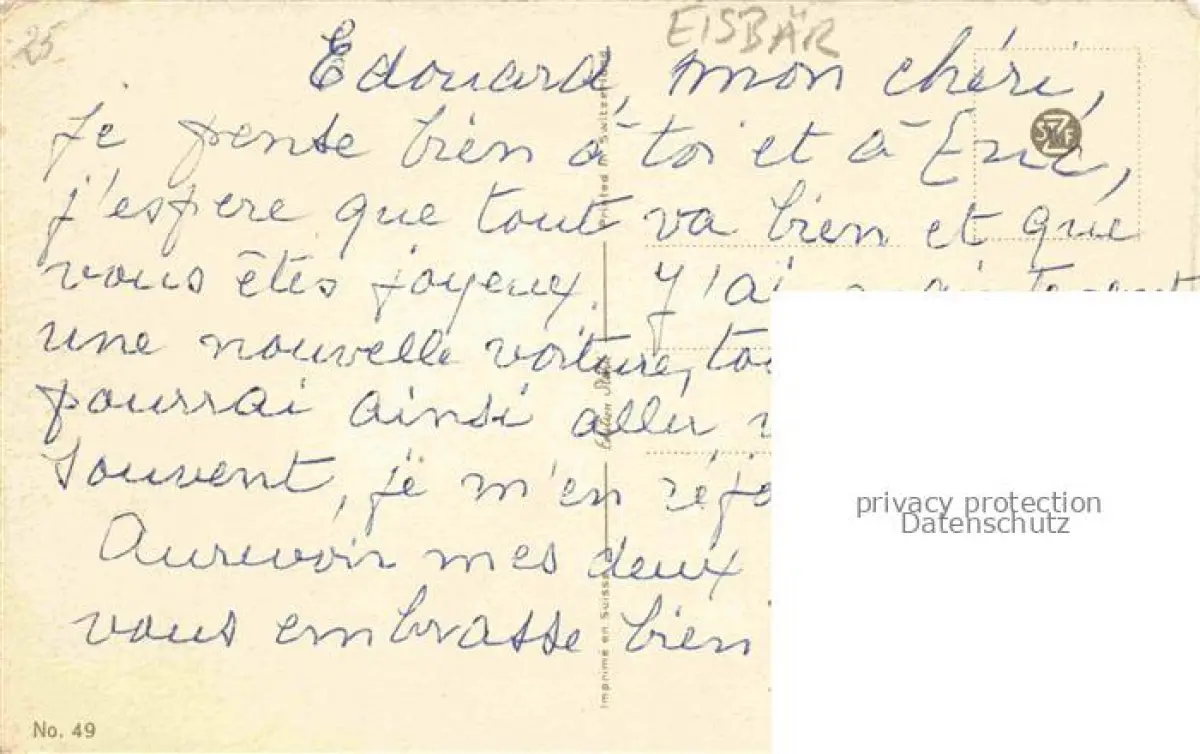 25
EISBÄR
Edouard, mon chéri,
Je pense bien à toi et à Eric,
j'espere que tout va bien et que
vous êtes joyeux. J'ai maintenant
une nouvelle voiture,
pourrai ainsi aller
souvent, je m'en
Aurevoir mes deux
vous embrasse bien
Printed in Switzerland
Imprimé en Suisse
No. 49
privacy protection
Datenschutz